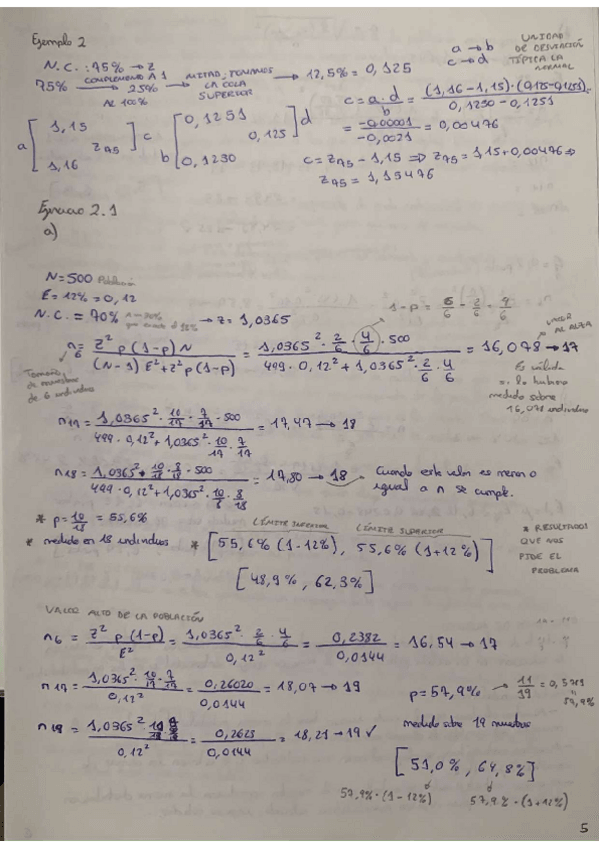 Ejemplo 2
N.C.: 75% → z
75% COMPLEMENTO A 1 AL 100% → 25% MITAD; TOMAMOS LA COLA SUPERIOR → 12,5% = 0,125
a → b
c → d
UNIDAD DE DESVIACIÓN TÍPICA LA NORMAL
a [ 1,15 z75 1,16 ] c b [ 0,1251 0,125 0,1230 ] d
c = a·d / b = (1,16 - 1,15)·(0,125-0,1251) / 0,1230 - 0,1251
= -0,00001 / -0,0021 = 0,00476
c = z75 - 1,15 ⇒ z75 = 1,15 + 0,00476 ⇒
z75 = 1,15476
Ejercicio 2.1
a)
N = 500 Población
E = 12% = 0,12
N.C. = 70% → z = 1,0365
1-p = 6/6 - 2/6 = 4/6
n6 = z² p (1-p) N / (N-1) E² + z² p (1-p) = 1,0365² · 2/6 · 4/6 · 500 / 499 · 0,12² + 1,0365² · 2/6 · 4/6 = 16,078 → 17
VALOR AL ALZA
Tamaño de muestra de 6 individuos
Es válida si lo hubiera medido sobre 16,071 individuos
n17 = 1,0365² · 10/17 · 7/17 · 500 / 499 · 0,12² + 1,0365² · 10/17 · 7/17 = 17,47 → 18
n18 = 1,0365² · 10/18 · 8/18 · 500 / 499 · 0,12² + 1,0365² · 10/6 · 8/18 = 17,80 → 18
Cuando este valor es menor o igual a n se cumple.
* p = 10/18 = 55,6%
* medido en 18 individuos
LÍMITE INFERIOR LÍMITE SUPERIOR
* [55,6% (1-12%), 55,6% (1+12%)]
* RESULTADO! QUE NOS PIDE EL PROBLEMA
[48,9% , 62,3%]
VALOR ALTO DE LA POBLACIÓN
n6 = z² p (1-p) / E² = 1,0365² · 2/6 · 4/6 / 0,12² = 0,2382 / 0,0144 = 16,54 → 17
n17 = 1,0365² · 10/17 · 7/17 / 0,12² = 0,26020 / 0,0144 = 18,07 → 19
p = 57,9% → 11/19 = 0,5789 = 57,9%
n19 = 1,0365² / 0,12² = 0,2623 / 0,0144 = 18,21 → 19 ✓
medido sobre 19 muestras
[51,0% , 64,8%]
57,9% · (1-12%) 57,9% · (1+12%)
5